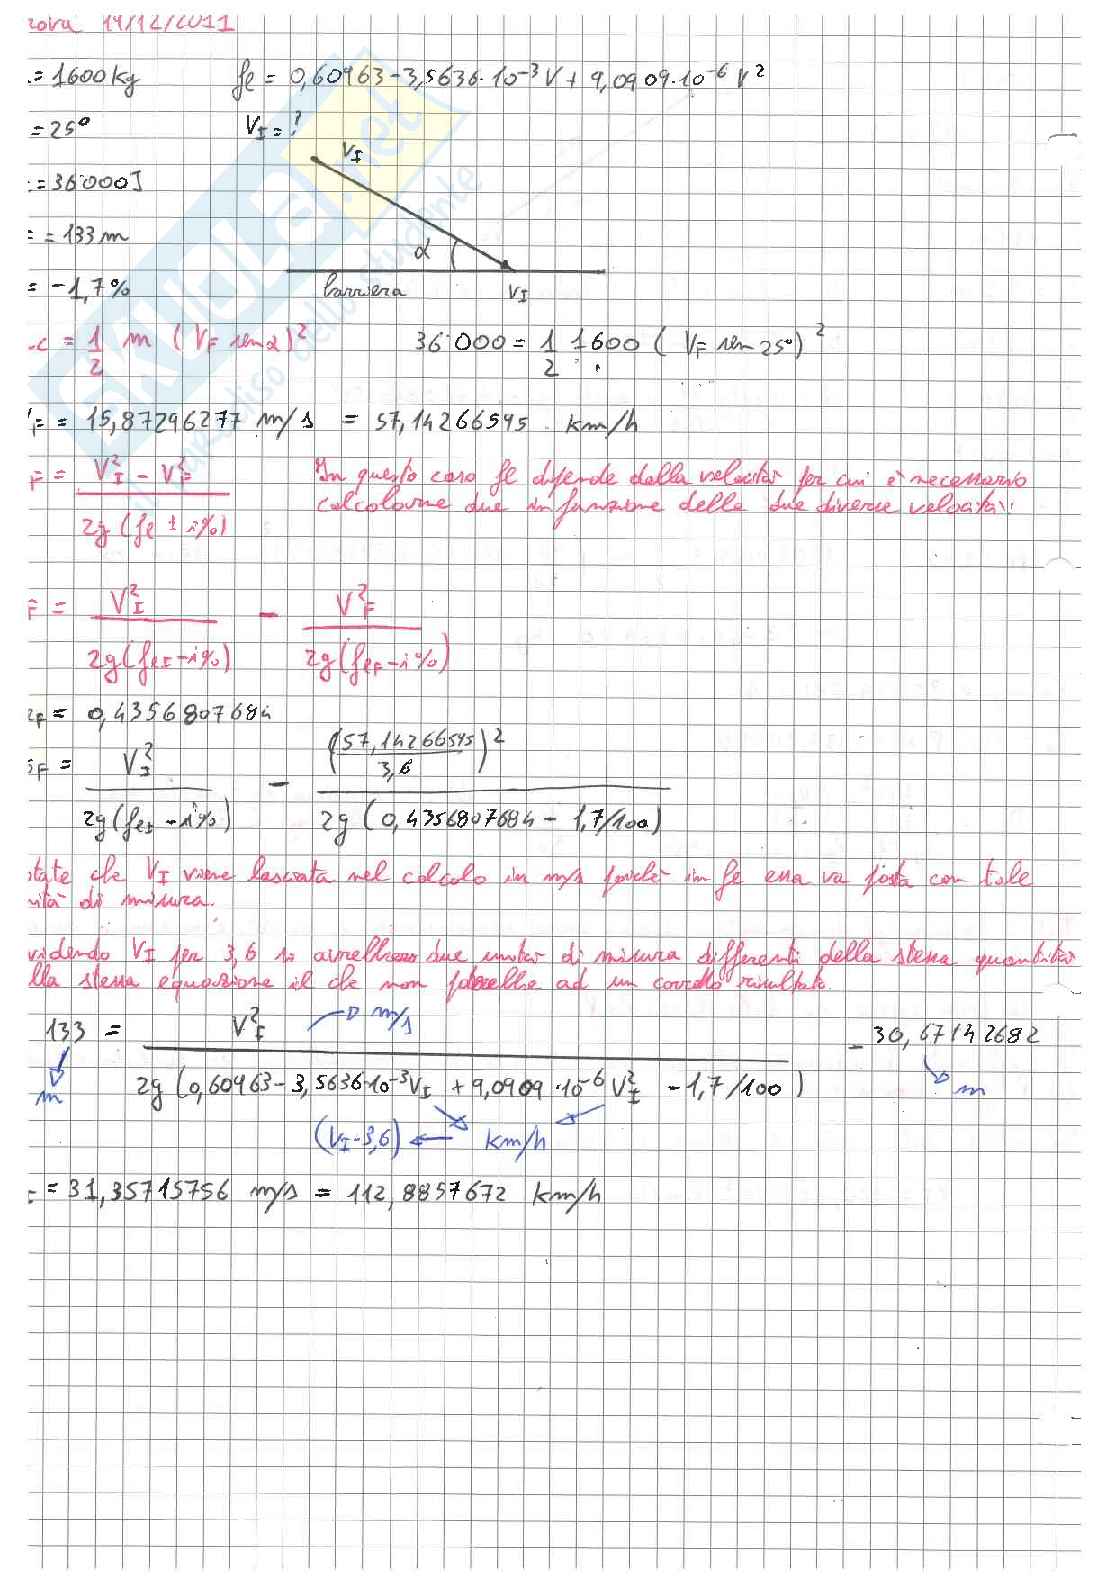 rova 14/12/2011
= 1600 kg fe = 0,60963 - 3,5636·10⁻³ V + 9,0909·10⁻⁶ V²
= 25° V_I = ?
V_I
= 36000 J
= 133 m
α
= -1,7%
barriera V_I
c = 1/2 m (V_F sen α)² 36000 = 1/2 1600 (V_F sen 25°)²
F = 15,87296277 m/s = 57,14266595 km/h
F = (V_I² - V_F²) / (2g (fe ± i%))
In questo caso fe dipende dalla velocità per cui è necessario
calcolarne due in funzione delle due diverse velocità:
F = V_I² / (2g (fe_I - i%)) - V_F² / (2g (fe_F - i%))
F = 0,4356807684
F = V_I² / (2g (fe_I - i%)) - (57,14266595 / 3,6)² / (2g (0,4356807684 - 1,7/100))
tate che V_I viene lasciata nel calcolo in m/s poiché in fe essa va posta con tale
ità di misura.
videndo V_I per 3,6 si avrebbero due unità di misura differenti della stessa quantità
lla stessa equazione il che non porterebbe ad un corretto risultato.
133 = V_I² / (2g (0,60963 - 3,5636·10⁻³ V_I + 9,0909·10⁻⁶ V_I² - 1,7/100)) - 30,67142682
m/s
m m
(V_I·3,6) ← km/h
= 31,35715756 m/s = 112,8857672 km/h
SKUOLA.net
paradiso dello studente